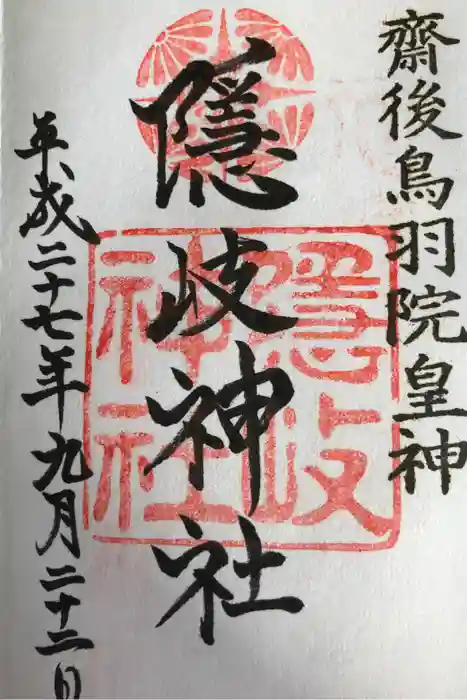 齋後鳥羽院皇神
隠岐神社
平成二十七年九月二十二日
隠岐
神社